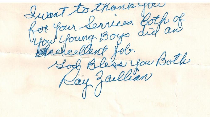 I want to thank you
for your Services Both of
you young Boys did an
Excellent job.
God Bless you Both
Ray Zaillian